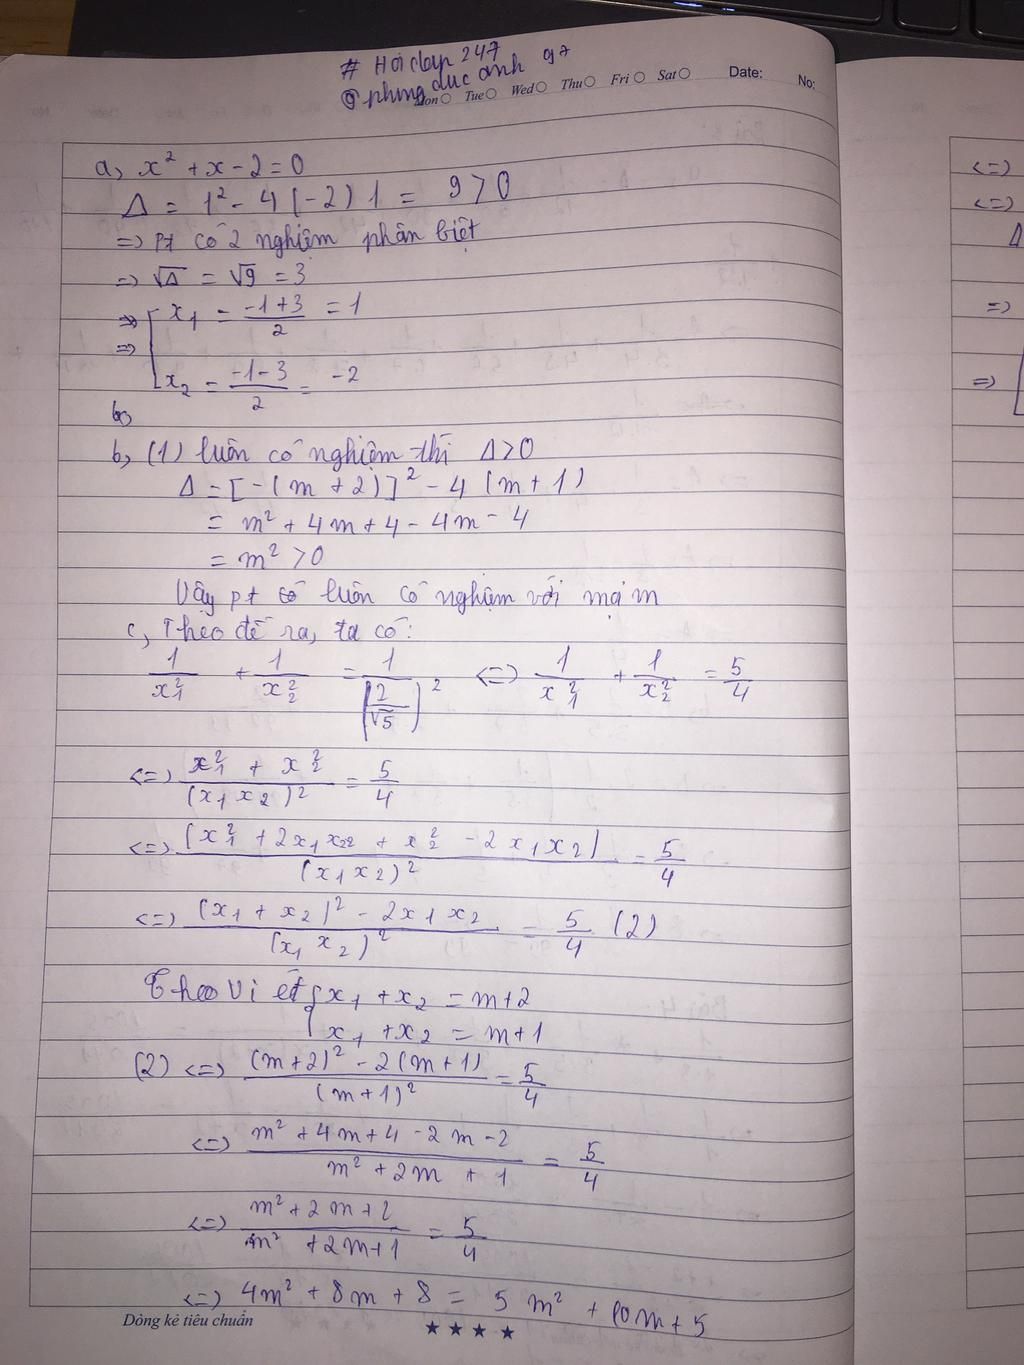 # Hỏi đáp 247
@ phung duc anh 97
Mon Tue Wed Thu Fri Sat Date: No:
a, x² + x - 2 = 0
Δ = 1² - 4 (-2) 1 = 9 > 0
=> pt có 2 nghiệm phân biệt
=> √Δ = √9 = 3
=> [ x₁ = (-1+3)/2 = 1
=>
x₂ = (-1-3)/2 = -2
b,
b, (1) luôn có nghiệm thì Δ > 0
Δ = [-(m + 2)]² - 4 (m + 1)
= m² + 4m + 4 - 4m - 4
= m² > 0
Vậy pt có luôn có nghiệm với mọi m
c, Theo đề ra, ta có:
1/x₁² + 1/x₂² = 1/(2/√5)² <=> 1/x₁² + 1/x₂² = 5/4
<=> (x₁² + x₂²)/(x₁x₂)² = 5/4
<=> (x₁² + 2x₁x₂ + x₂² - 2x₁x₂)/(x₁x₂)² = 5/4
<=> ((x₁ + x₂)² - 2x₁x₂)/(x₁x₂)² = 5/4 (2)
Theo Vi ét { x₁ + x₂ = m+2
x₁ + x₂ = m+1
(2) <=> ((m+2)² - 2(m+1))/(m+1)² = 5/4
<=> (m² + 4m + 4 - 2m - 2)/(m² + 2m + 1) = 5/4
<=> (m² + 2m + 2)/(m² + 2m + 1) = 5/4
<=> 4m² + 8m + 8 = 5m² + 10m + 5
Dòng kẻ tiêu chuẩn
★ ★ ★ ★
<=>
<=>
Δ
=>
=> [